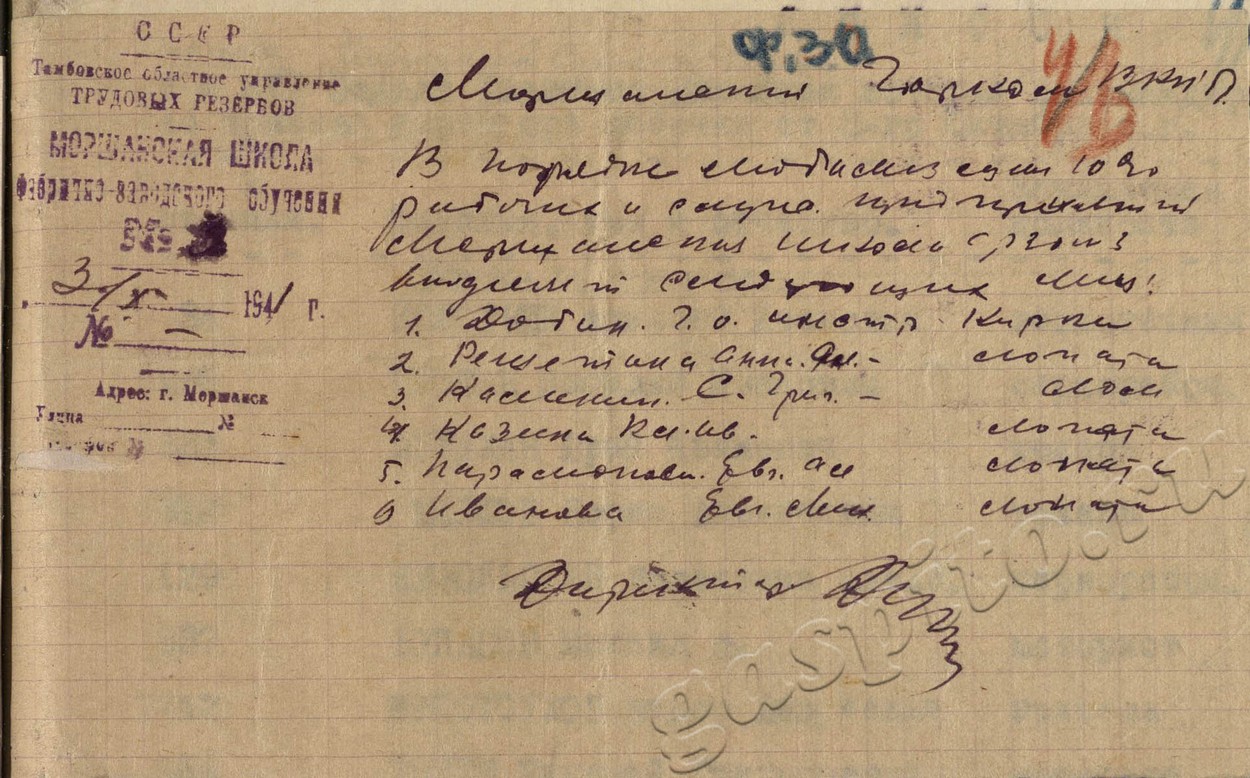 СССР
Тамбовское областное управление
ТРУДОВЫХ РЕЗЕРВОВ
МОРШАНСКАЯ ШКОЛА
фабрично-заводского обучения
№
3/X 1941 г.
№ —
Адрес: г. Моршанск
Улица №
№
Ф, 30
46
Моршанский Горком ВКП
В порядке мобилизации 10%
рабочих и предприятий
Моршанская школа ФЗО №3
следующих лиц:
1. Г. О. инстр. Кирка
2. Решетина Анна. — лопата
3. Калинин. С. Григ. — лом
4. Казина Кл. Ив. лопата
5. Парамонова. Евг. Ал лопата
6 Иванова Евг. Мих. лопата
Директор
gaspito.ru